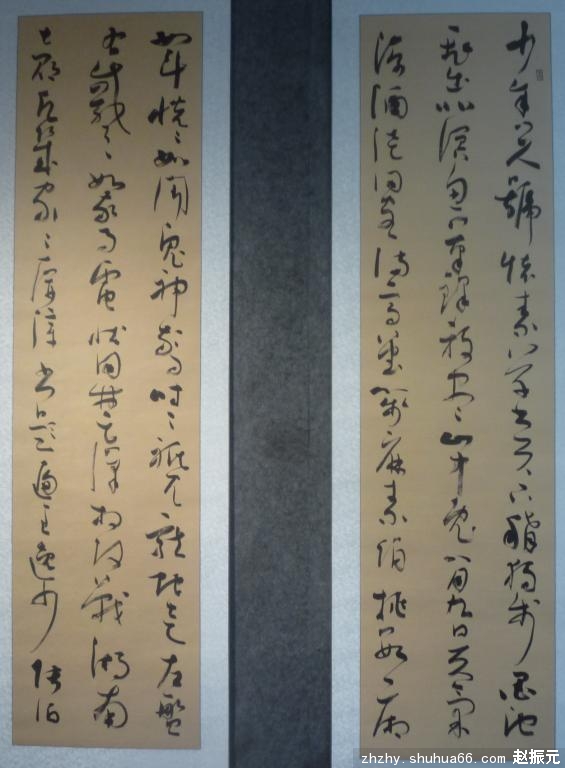 少年上人號懷素草書天下稱獨步墨池
飛出北溟魚筆鋒殺盡中山兔八月九日天氣
涼酒徒詞客滿高堂箋麻素絹排數廂
如斗怳〻如聞鬼神驚時〻祇見龍蛇走左盤
右蹙如驚電狀同楚漢相攻戰湖南
七郡凡幾家〻屏障書題遍王逸少張伯
zhzhy.shuhua66.com 赵振元